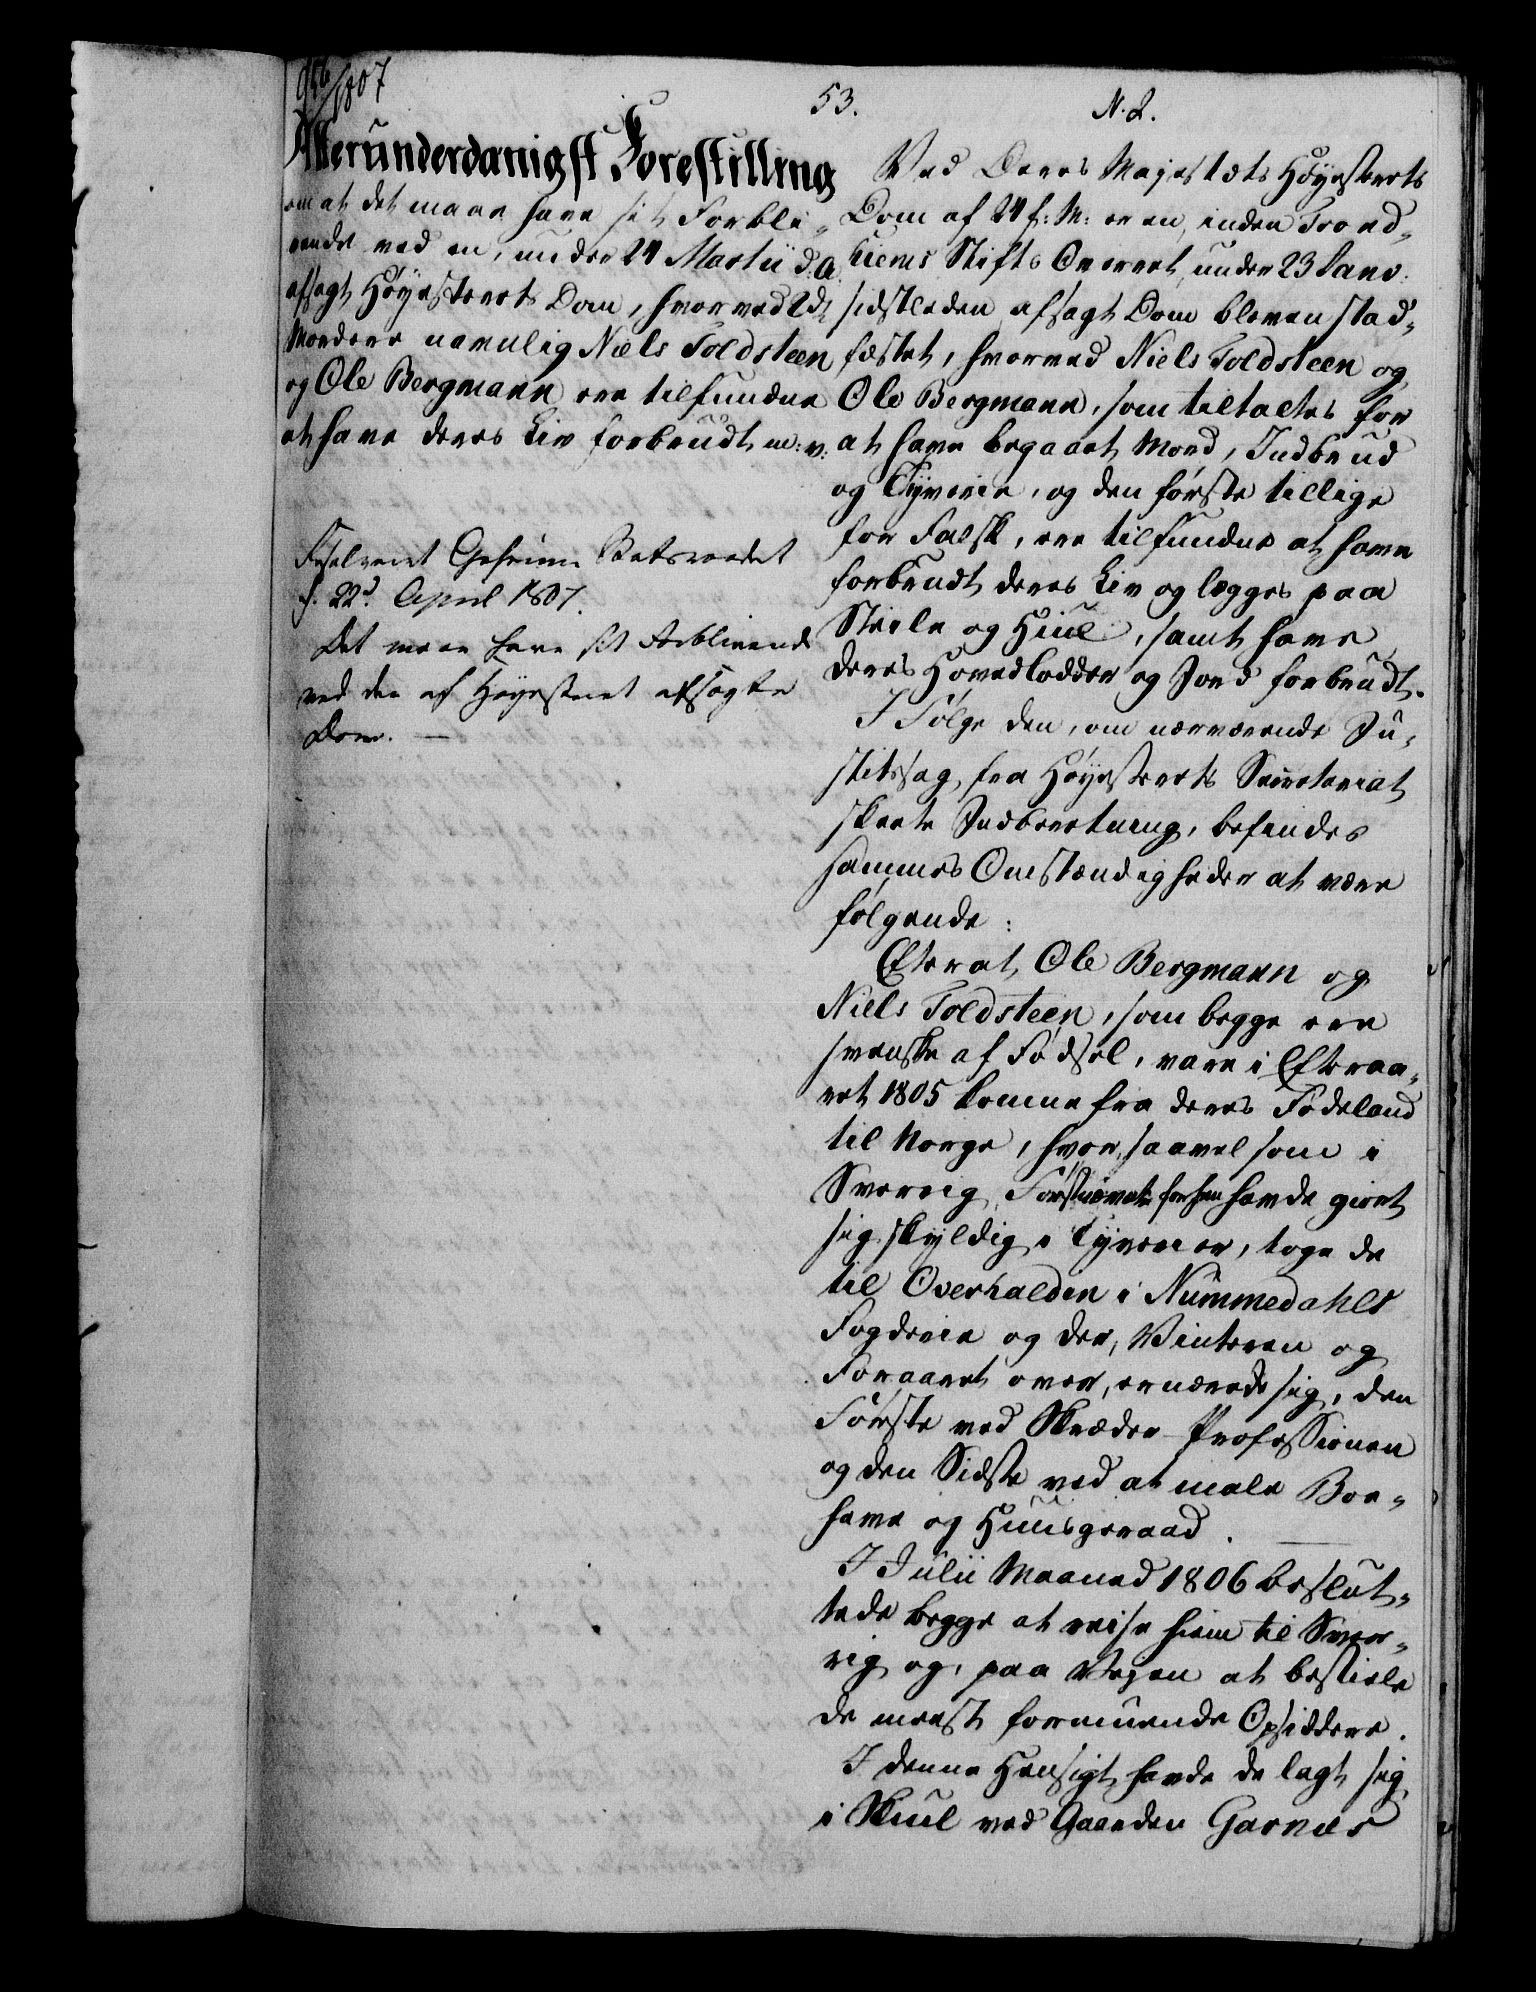 956/1807
53.
N. 2.
Allerunderdanigst Forestilling
om at det maae have sit Forbli-
vende ved en, under 24 Martii d: A:
afsagt Høyesterets Dom, hvorved 2de
Mordere navnlig Niels Toldsteen
og Ole Bergmann ere tilfundne
at have deres Liv forbrudt m: v:
Resolveret Geheime Statsraadet
d. 22d. April 1807.
Det maae have sit Forblivende
ved den af Høyesteret afsagte
Dom. —
Ved Deres Majestæts Høyesterets
Dom af 24 f: M: er en, inden Trond-
hiems Stifts Overret, under 23 Janv.
sidstleden afsagt Dom bleven stad-
fæstet, hvorved Niels Toldsteen og
Ole Bergmann, som tiltaltes for
at have begaaet Mord, Indbrud
og Tyverie, og den første tillige
for Falsk, ere tilfundne at have
forbrudt deres Liv og lægges paa
Steile og Hiul, samt have
deres Hovedlodder og Jord forbrudt.
I Følge den, om nærværende Ju-
stitssag, fra Høyesterets Secretariat
skeete Indberetning, befindes
sammes Omstændigheder at være
følgende:
Efterat Ole Bergmann og
Niels Toldsteen, som begge ere
svenske af Fødsel, vare i Efteraa-
ret 1805 komne fra deres Fødeland
til Norge, hvor, saavel som i
Sverrig, Førstnævnte forhen havde giort
sig skyldig i Tyverier, toge de
til Overhalden i Nummedahls
Fogderie og der, Vinteren og
Foraaret over, ernærede sig, den
Første ved Skræder-Professionen
og den Sidste ved at male Boe-
have og Huusgeraad. —
I Julii Maaned 1806 beslut-
tede begge at reise hiem til Sver-
rig og, paa Veyen at bestiele
de meest formuende Opsiddere.
I denne Hensigt havde de lagt sig
i Skiul ved Gaarden Garnæs